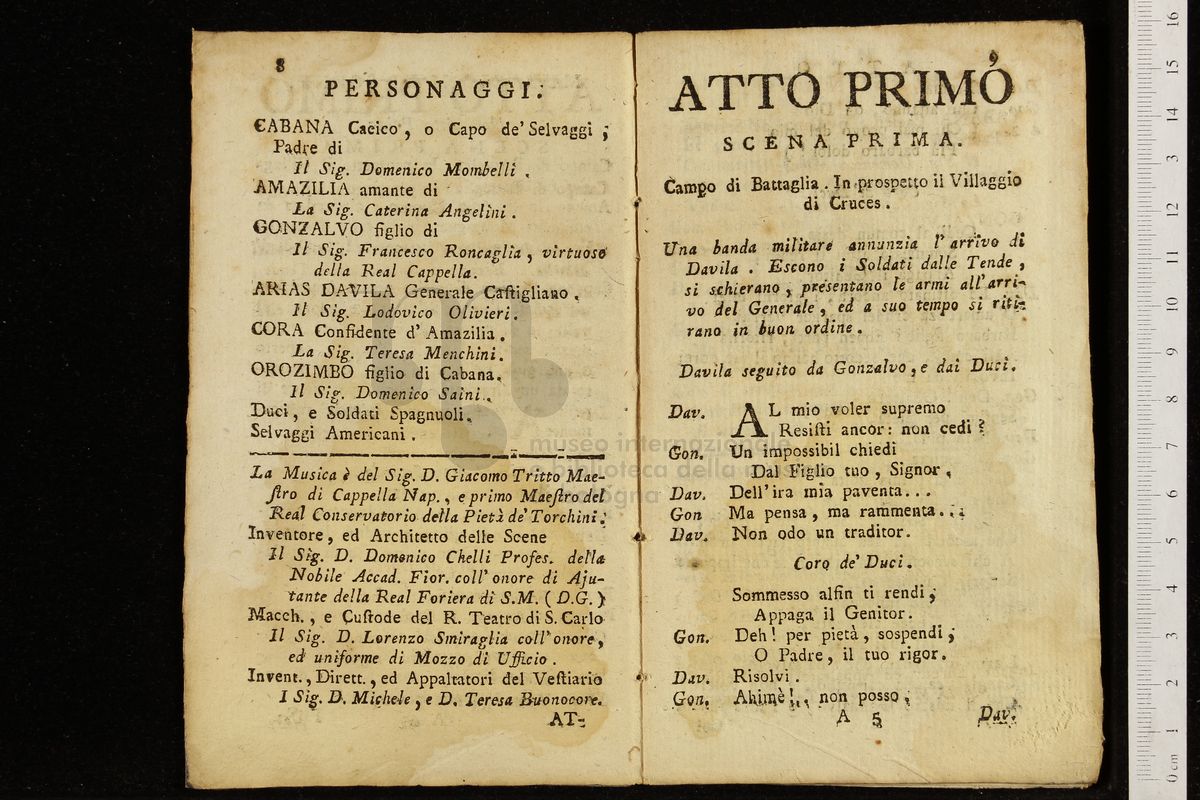 8
PERSONAGGI.
CABANA Cacico, o Capo de' Selvaggi;
Padre di
Il Sig. Domenico Mombelli.
AMAZILIA amante di
La Sig. Caterina Angelini.
GONZALVO figlio di
Il Sig. Francesco Roncaglia, virtuoso
della Real Cappella.
ARIAS DAVILA Generale Caſtigliano.
Il Sig. Lodovico Olivieri.
CORA Confidente d' Amazilia.
La Sig. Teresa Menchini.
OROZIMBO figlio di Cabana.
Il Sig. Domenico Saini.
Duci, e Soldati Spagnuoli.
Selvaggi Americani.
La Musica è del Sig. D. Giacomo Tritto Mae-
ſtro di Cappella Nap., e primo Maeſtro del
Real Conservatorio della Pietà de' Torchini.
Inventore, ed Architetto delle Scene
Il Sig. D. Domenico Chelli Profes. della
Nobile Accad. Fior. coll' onore di Aju-
tante della Real Foriera di S.M. (D.G.)
Macch., e Cuſtode del R. Teatro di S. Carlo
Il Sig. D. Lorenzo Smiraglia coll' onore,
ed uniforme di Mozzo di Ufficio.
Invent., Dirett., ed Appaltatori del Veſtiario
I Sig. D. Michele, e D. Teresa Buonocore.
AT-
9
ATTO PRIMO
SCENA PRIMA.
Campo di Battaglia. In prospetto il Villaggio
di Cruces.
Una banda militare annunzia l' arrivo di
Davila. Escono i Soldati dalle Tende,
si schierano, presentano le armi all' arri-
vo del Generale, ed a suo tempo si riti-
rano in buon ordine.
Davila seguito da Gonzalvo, e dai Duci.
Dav. AL mio voler supremo
Resiſti ancor: non cedi?
Gon. Un impossibil chiedi
Dal Figlio tuo, Signor.
Dav. Dell' ira mia paventa...
Gon Ma pensa, ma rammenta...
Dav. Non odo un traditor.
Coro de' Duci.
Sommesso alfin ti rendi,
Appaga il Genitor.
Gon. Deh! per pietà, sospendi,
O Padre, il tuo rigor.
Dav. Risolvi.
Gon. Ahimè!.. non posso.
A 5
Dav.
museo internazionale
e biblioteca della musica
di bologna
0 cm 1 2 3 4 5 6 7 8 9 10 11 12 13 14 15 16